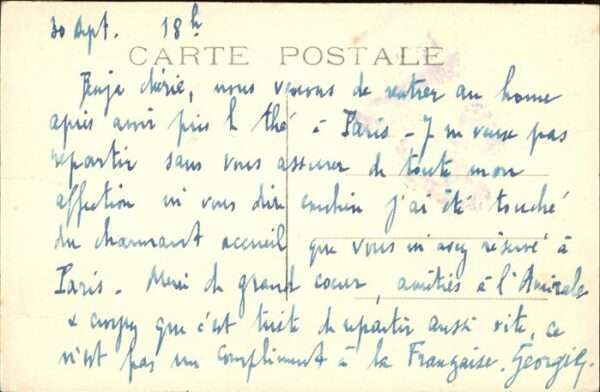 30 Sept. 18h
CARTE POSTALE
chérie, nous venons de rentrer au home
après avoir pris le thé à Paris - Je ne veux pas
repartir sans vous assurer de toute mon
affection ni vous dire combien j'ai été touché
du charmant accueil que vous m'avez réservé à
Paris - Merci de grand coeur, amitiés à l'Amirale
& que c'est triste de repartir aussi vite, ce
n'est pas un compliment à la Française. Georges